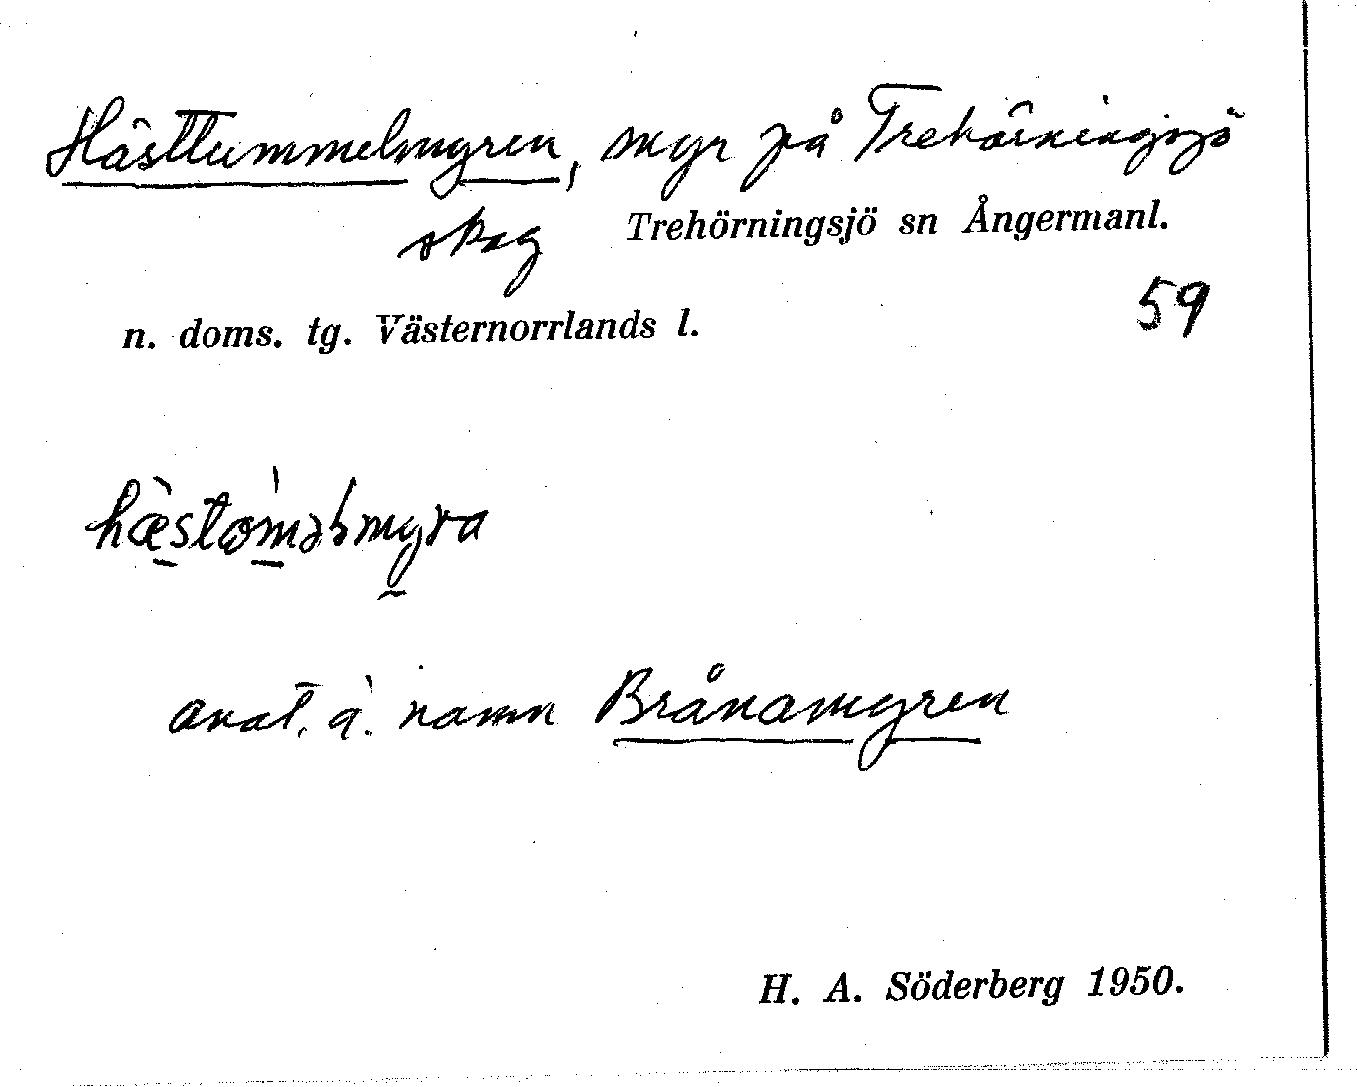 Hästtummelmyren, myr på Trehörningsjö
skog Trehörningsjö sn Ångermanl.
n. doms. tg. Västernorrlands l. 59
namn Brånamyren
H. A. Söderberg 1950.